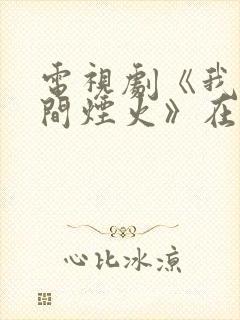 電視劇《我
間煙火》在
心比冰涼